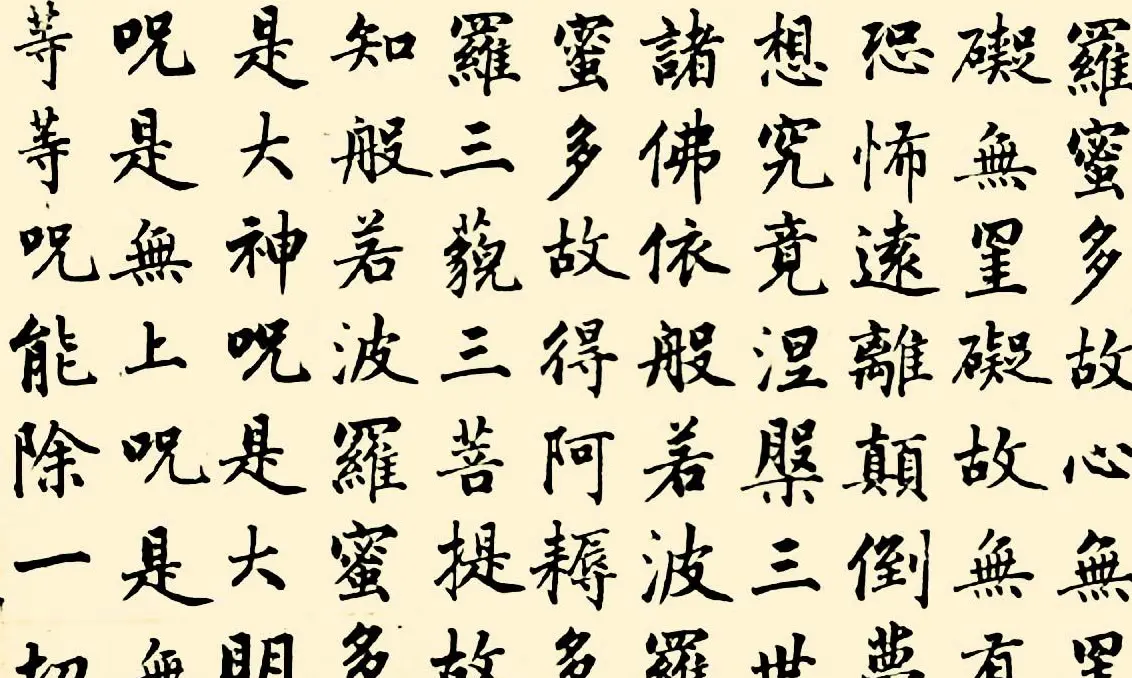 羅蜜多故心無罣
礙無罣礙故無有
恐怖遠離顛倒夢
想究竟涅槃三世
諸佛依般若波羅
蜜多故得阿耨多
羅三藐三菩提故
知般若波羅蜜多
是大神呪是大明
呪是無上呪是無
等等呪能除一切